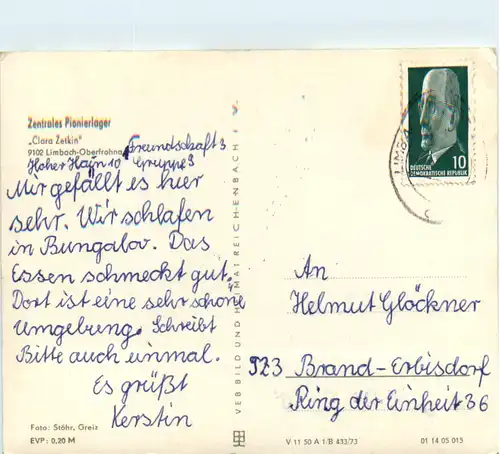 Zentrales Pionierlager
„Clara Zetkin"
9102 Limbach-Oberfrohna, Freundschaft 3
Hoher Hayn 10 Gruppe 3
Mir gefällt es hier
sehr. Wir schlafen
in Bungalov. Das
Essen schmeckt gut.
Dort ist eine sehr schöne
Umgebung. Schreibt
Bitte auch einmal.
Es grüßt
Kerstin
Foto: Stöhr, Greiz
EVP: 0,20 M
VEB BILD UND HEIMAT REICHENBACH i. V.
LIMBA
10
DEUTSCHE
DEMOKRATISCHE REPUBLIK
An
Helmut Glöckner
923 Brand-Erbisdorf
Ring der Einheit 36
V 11 50 A 1/B 433/73
01 14 05 015